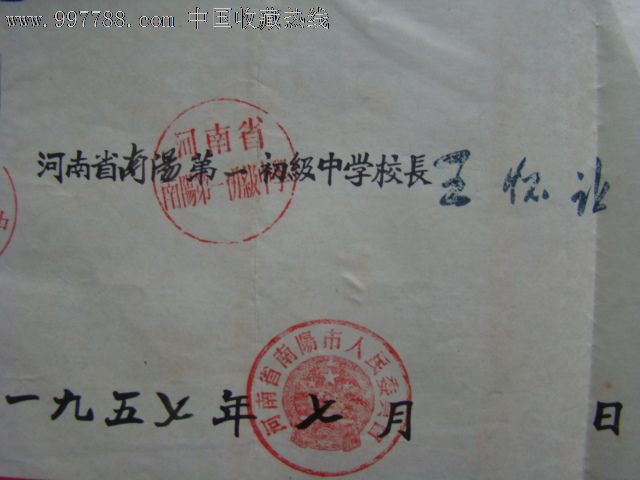 www.997788.com 中国收藏热线
河南省
南陽第一初級中学
河南省南陽第一初級中学校長
河南省南陽市人民委員会
一九五七年七月 日